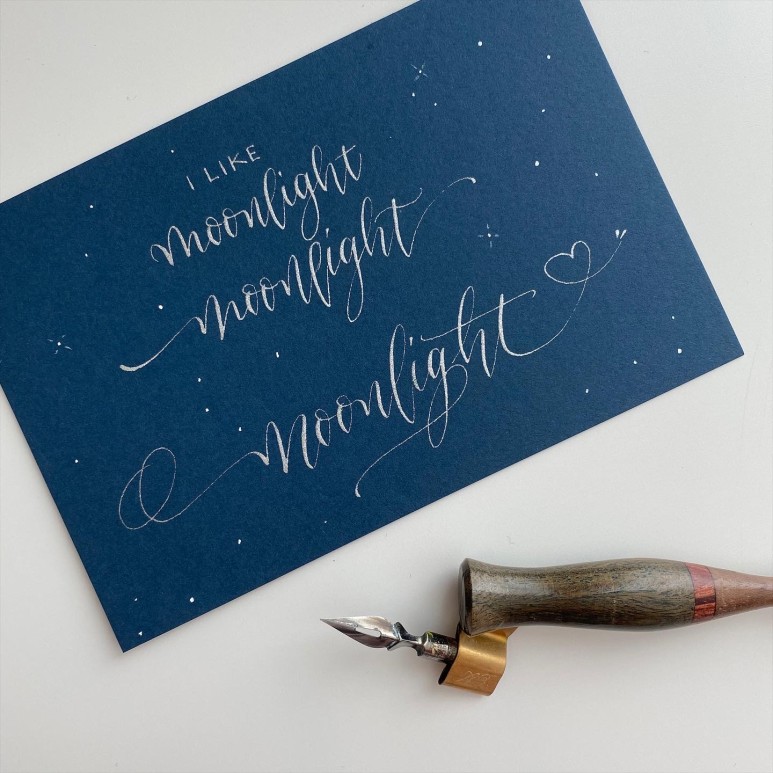 I LIKE
moonlight
moonlight
moonlight